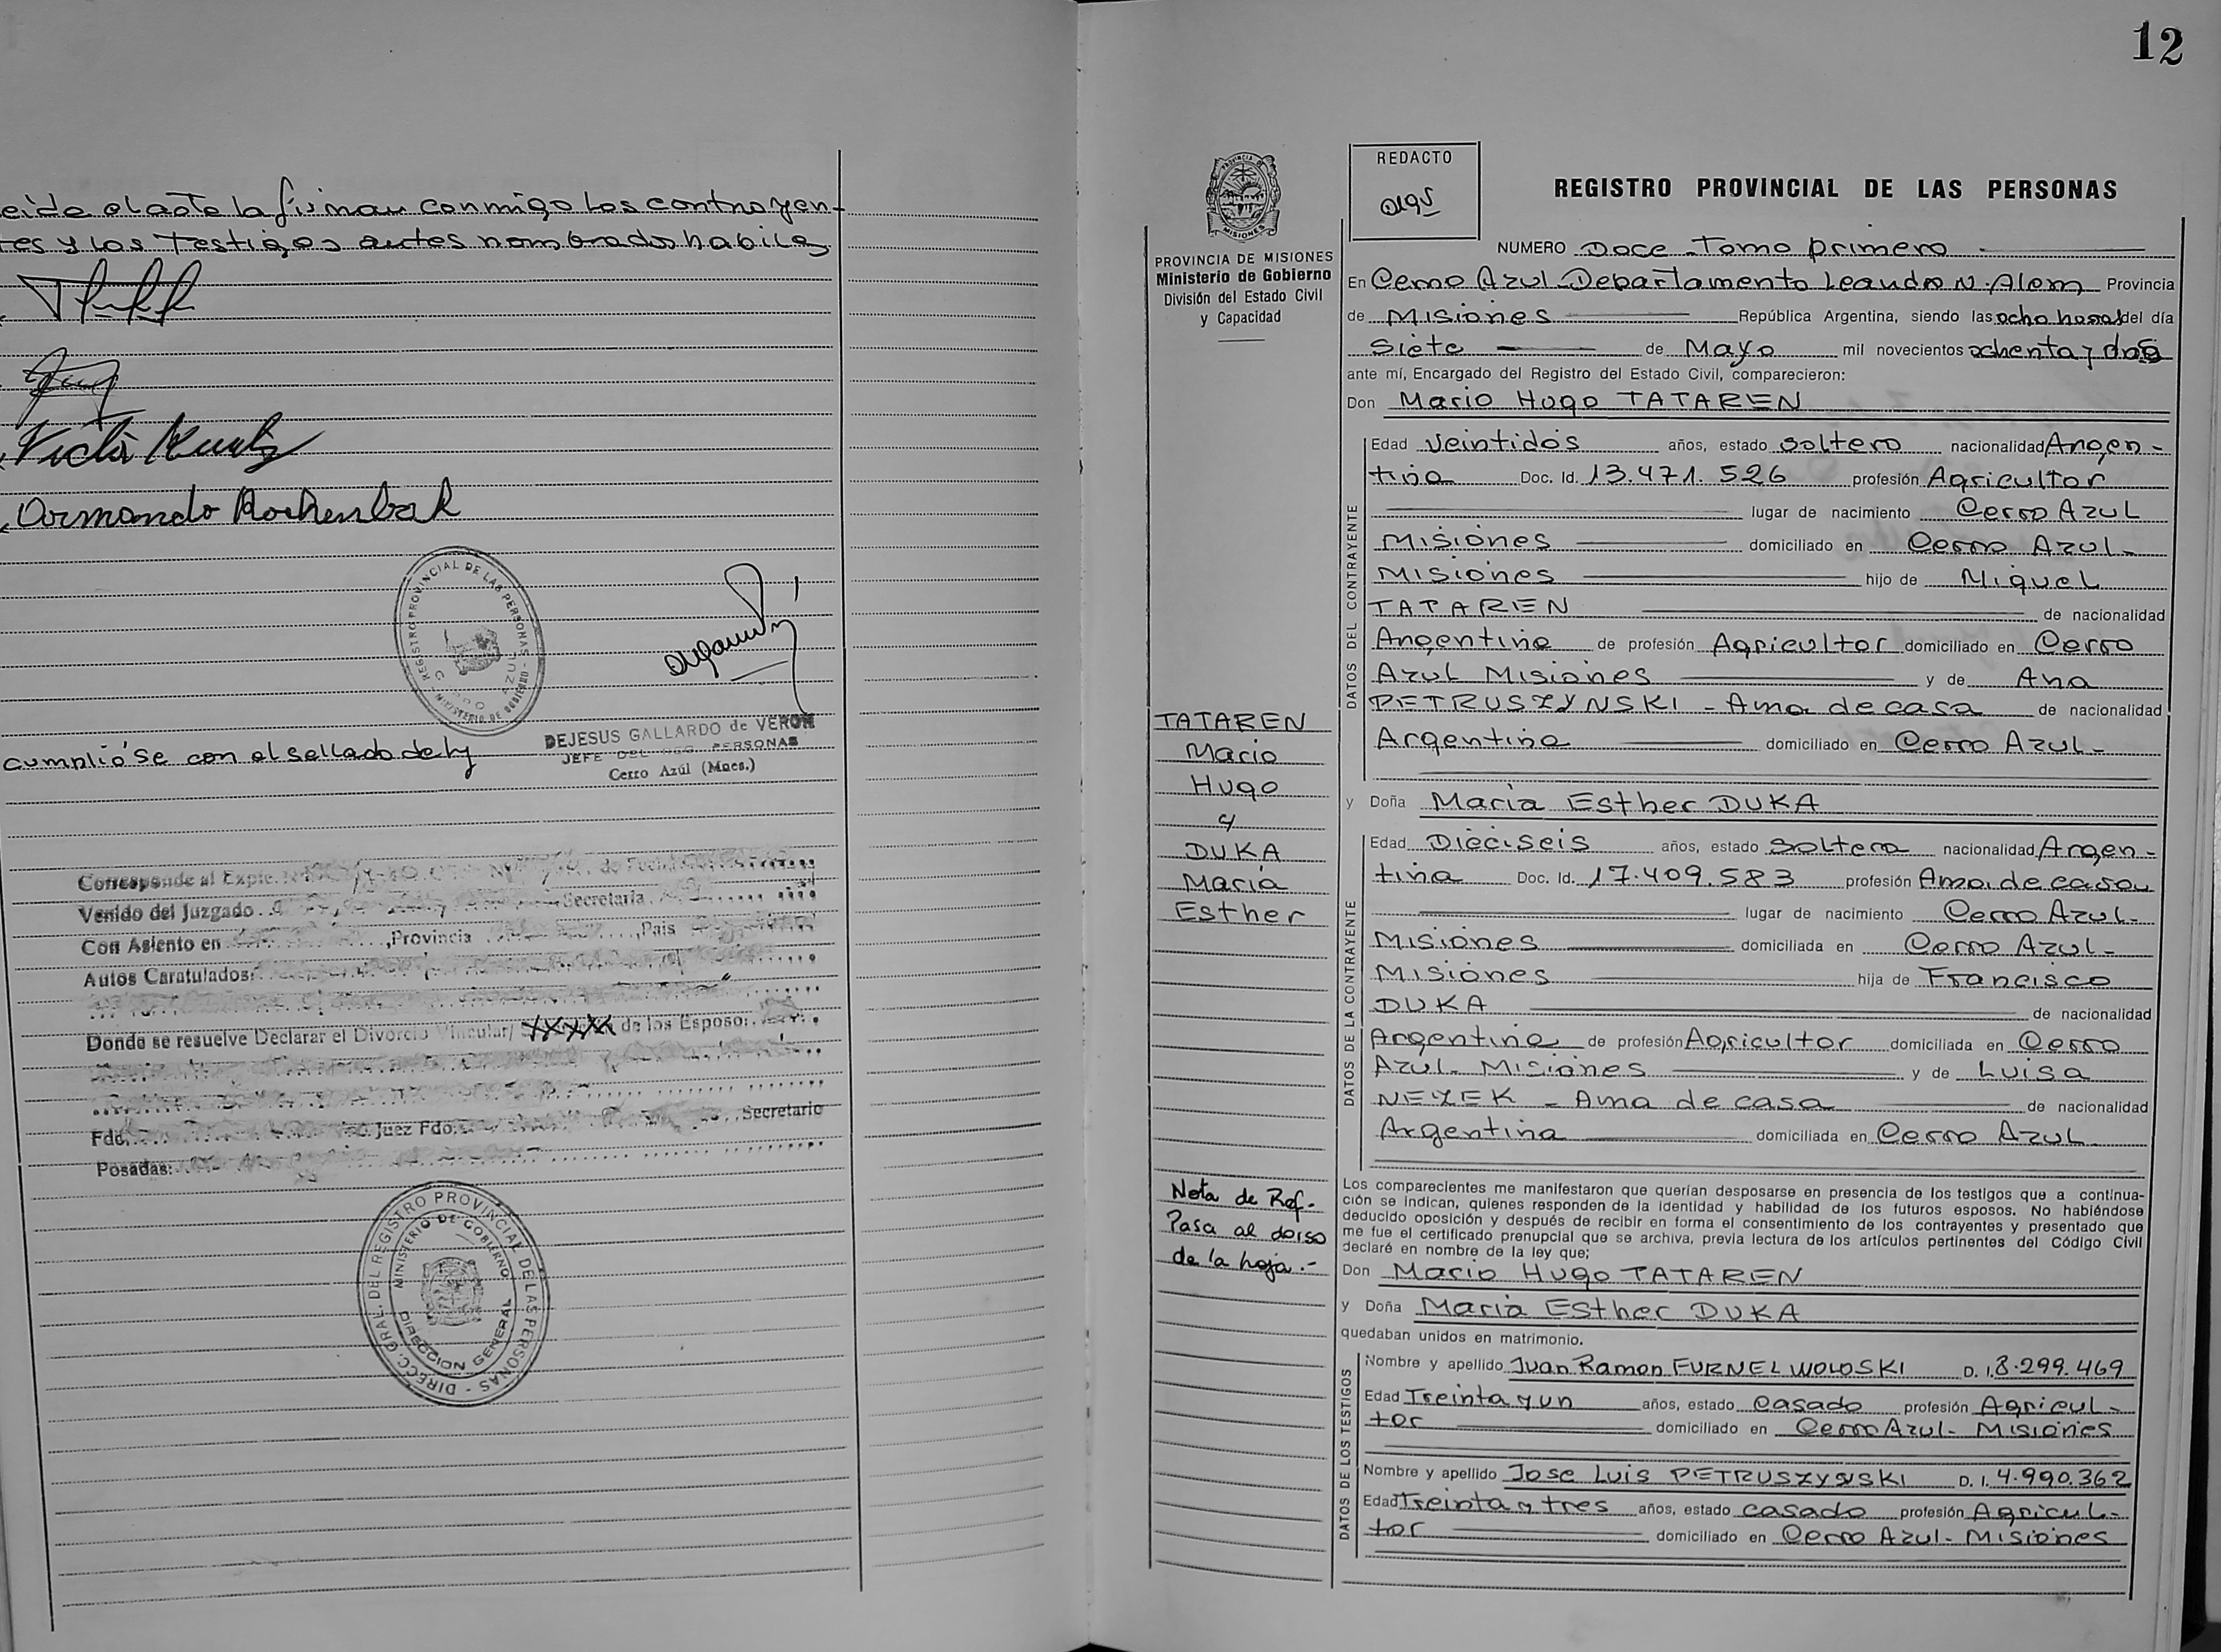 eida el acto la firman conmigo los contrayen-
tes y los Testigos antes nombrados habiles
Armando Rochenbak
REGISTRO PROVINCIAL DE LAS PERSONAS - MINISTERIO DE GOBIERNO -
DEJESUS GALLARDO de VERON
JEFE DEL REG. PERSONAS
Cerro Azúl (Mnes.)
cumplió se con el sellado de ley
Corresponde al Expte. de Fecha
Venido del Juzgado Secretaria
Con Asiento en ,Provincia ,País
Autos Caratulados:
Donde se resuelve Declarar el Divorcio Vincular/ de los Esposo:
Fdo. Juez Fdo. Secretario
Posadas:
DIRECC. GRAL. DEL REGISTRO PROVINCIAL DE LAS PERSONAS -
MINISTERIO DE GOBIERNO
DIRECCION GENERAL
12
PROVINCIA DE MISIONES
PROVINCIA DE MISIONES
Ministerio de Gobierno
División del Estado Civil
y Capacidad
TATAREN
Mario
Hugo
y
DUKA
María
Esther
Nota de Ref.-
Pasa al dorso
de la hoja.-
REDACTO
REGISTRO PROVINCIAL DE LAS PERSONAS
NUMERO Doce - Tomo primero
En Cerro Azul - Departamento Leandro N. Alem Provincia
de Misiones República Argentina, siendo las ocho horas del día
Siete de Mayo mil novecientos ochenta y dos
ante mí, Encargado del Registro del Estado Civil, comparecieron:
Don Mario Hugo TATAREN
DATOS DEL CONTRAYENTE
Edad Veintidos años, estado soltero nacionalidad Argen-
tina Doc. Id. 13.471.526 profesión Agricultor
lugar de nacimiento Cerro Azul
Misiones domiciliado en Cerro Azul-
Misiones hijo de Miguel
TATAREN de nacionalidad
Argentina de profesión Agricultor domiciliado en Cerro
Azul Misiones y de Ana
PETRUSZYNSKI - Ama de casa de nacionalidad
Argentina domiciliado en Cerro Azul-
y Doña María Esther DUKA
DATOS DE LA CONTRAYENTE
Edad Dieciseis años, estado soltera nacionalidad Argen-
tina Doc. Id. 17.409.583 profesión Ama de casa
lugar de nacimiento Cerro Azul-
Misiones domiciliada en Cerro Azul-
Misiones hija de Francisco
DUKA de nacionalidad
Argentina de profesión Agricultor domiciliada en Cerro
Azul- Misiones y de Luisa
NEZEK - Ama de casa de nacionalidad
Argentina domiciliada en Cerro Azul
Los comparecientes me manifestaron que querían desposarse en presencia de los testigos que a continua-
ción se indican, quienes responden de la identidad y habilidad de los futuros esposos. No habiéndose
deducido oposición y después de recibir en forma el consentimiento de los contrayentes y presentado que
me fue el certificado prenupcial que se archiva, previa lectura de los artículos pertinentes del Código Civil
declaré en nombre de la ley que;
Don Mario Hugo TATAREN
y Doña María Esther DUKA
quedaban unidos en matrimonio.
DATOS DE LOS TESTIGOS
Nombre y apellido Juan Ramon FURNEL WOLOSKI D. I. 8.299.469
Edad Treinta y un años, estado casado profesión Agricul-
tor domiciliado en Cerro Azul- Misiones
Nombre y apellido Jose Luis PETRUSZYNSKI D. I. 4.990.362
Edad Treinta y tres años, estado casado profesión Agricul-
tor domiciliado en Cerro Azul- Misiones